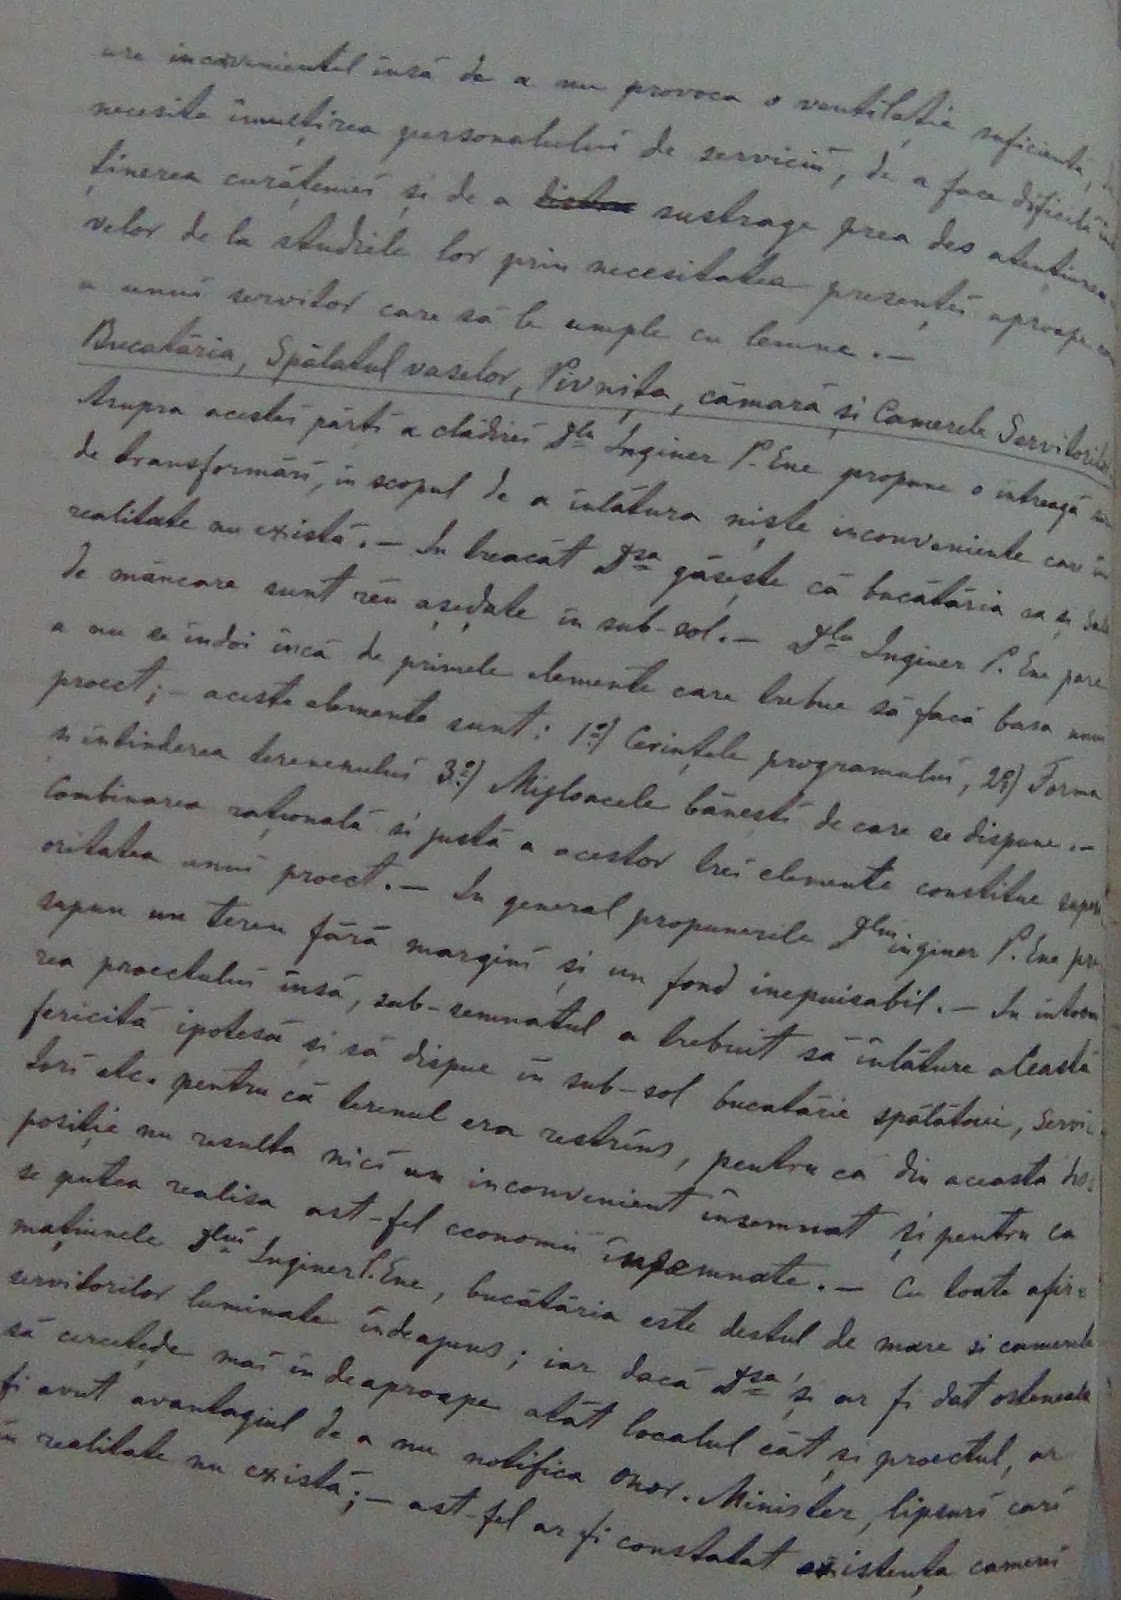 are inconvenientul însă de a nu provoca o ventilație suficientă, de
necesita înmulțirea personalului de serviciŭ, de a face dificilă în
ținerea curățenieĭ și de a sustrage prea des atențiunea
velor de la studiile lor prin necesitatea presențeĭ aproape
a unuĭ servitor care să le umple cu lemne. —
Bucatăria, Spălatul vaselor, Pivnița, cămară și Camerele Servitorilor
Asupra acesteĭ părțĭ a clădireĭ Dlu Inginer P. Ene propune o întreagă
de transformărĭ, în scopul de a înlătura niște inconveniente care în
realitate nu există. — In treacăt Dsa găsește că bucătăria ca și sala
de mâncare sunt rĕu așeḑate în sub-sol. — Dlu Inginer P. Ene pare
a nu se îndoi încă de primele elemente care trebue să facă basa unuĭ
proect; — aceste elemente sunt: 1º) Cerințele programuluĭ, 2º) Forma
și întinderea terenenuluĭ 3º) Mijloacele băneștĭ de care se dispune. —
Combinarea rațională și justă a acestor treĭ elemente constitue superi
oritatea unuĭ proect. — In general propunerile Dluĭ inginer P. Ene pre
supun un teren fără marginĭ și un fond inepuisabil. — In întocmi
rea proectuluĭ însă, sub-semnatul a trebuit să înlăture această
fericită ipotesă și să dispue în sub-sol bucatărie spălătorie, Servi-
torĭ etc. pentru că terenul era restrîns, pentru că din aceasta dis=
posiție nu resulta nicĭ un inconvenient însemnat și pentru ca
se putea realisa ast-fel economiĭ însemnate. — Cu toate afir=
mațiunele Dluĭ Inginer P. Ene, bucătăria este destul de mare si camerile
servitorilor luminate îndeajuns; iar dacă Dsa și ar fi dat osteneala
să cerceteḑe maĭ în deaproape atât localul cât și proectul, ar
fi avut avantagiul de a nu notifica Onor. Minister, lipsurĭ carĭ
în realitate nu există; — ast-fel ar fi constatat existența camereĭ